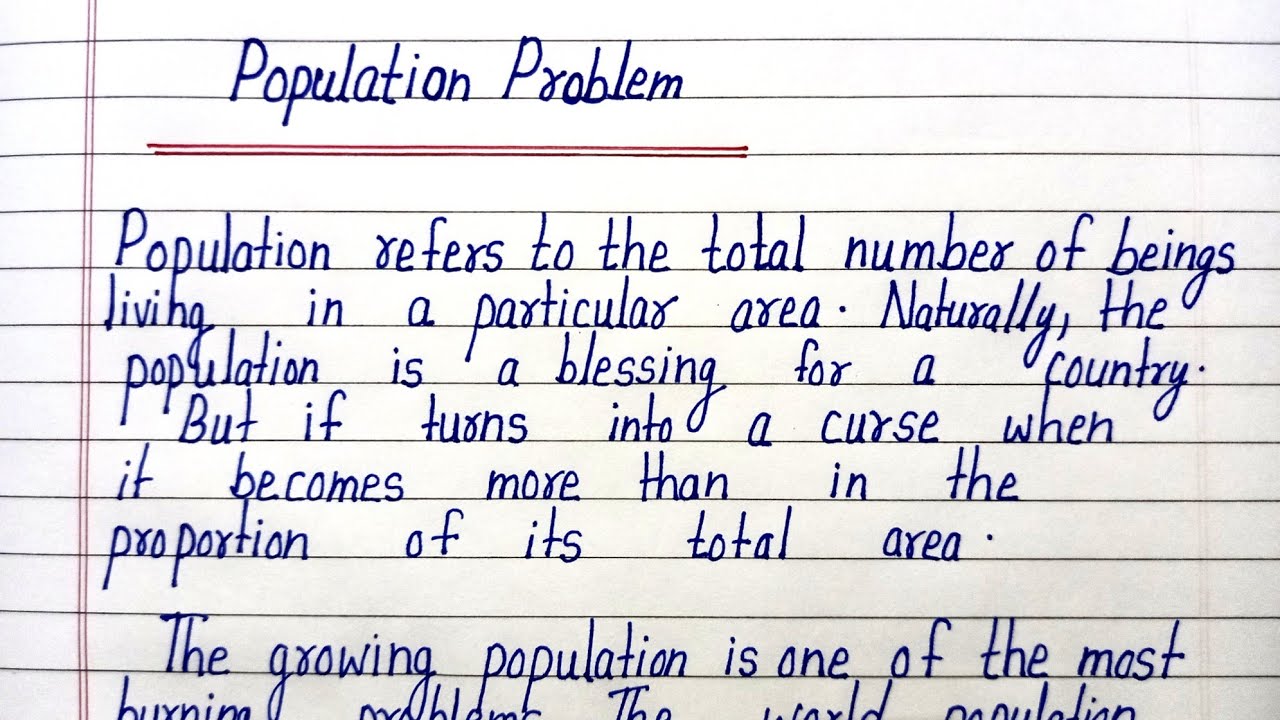 Population Problem
Population refers to the total number of beings
living in a particular area. Naturally, the
population is a blessing for a country.
But if turns into a curse when
it becomes more than in the
proportion of its total area.
The growing population is one of the most
burning problems The world population